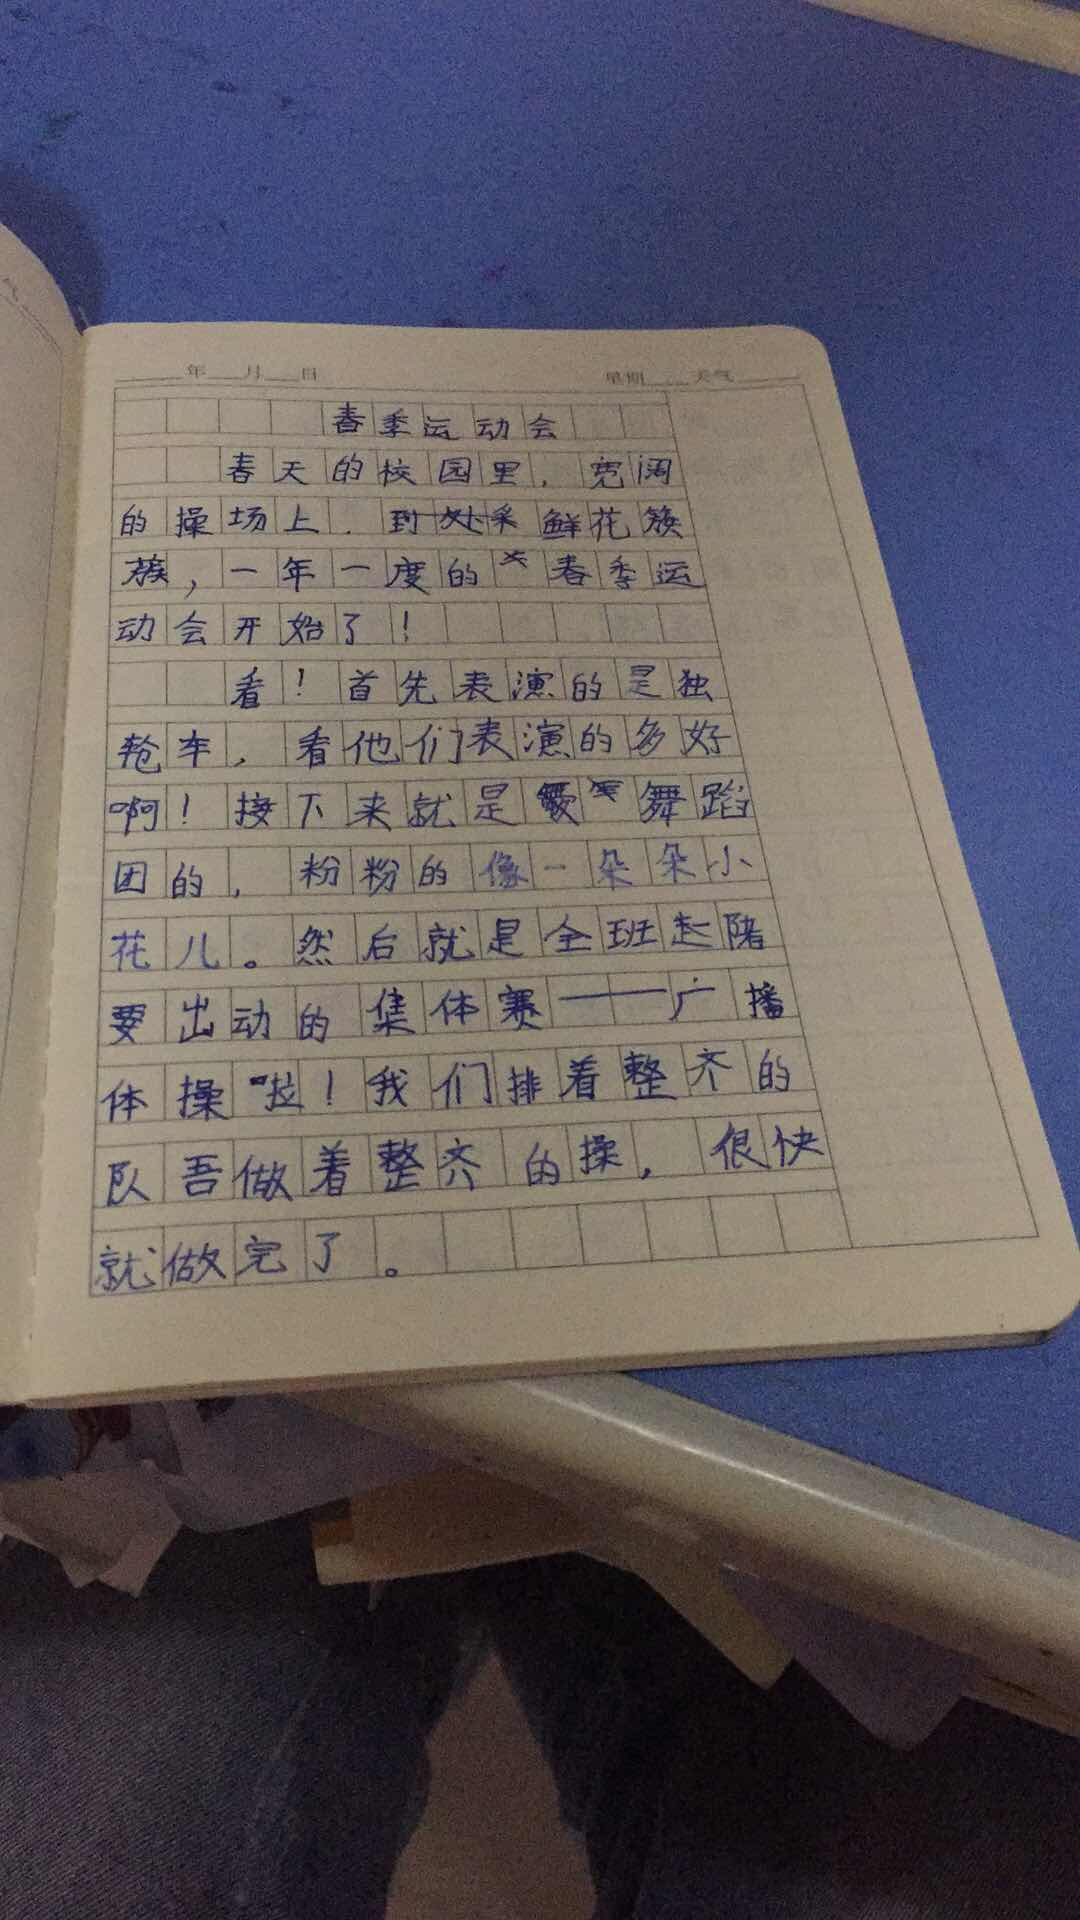 年 月 日 星期 天气
春季运动会
春天的校园里，宽阔
的操场上．到处采鲜花簇
簇，一年一度的春季运
动会开始了！
看！首先表演的是独
轮车，看他们表演的多好
啊！接下来就是舞蹈
团的，粉粉的像一朵朵小
花儿。然后就是全班起陪
要出动的集体赛——广播
体操啦！我们排着整齐的
队吾做着整齐的操，很快
就做完了。